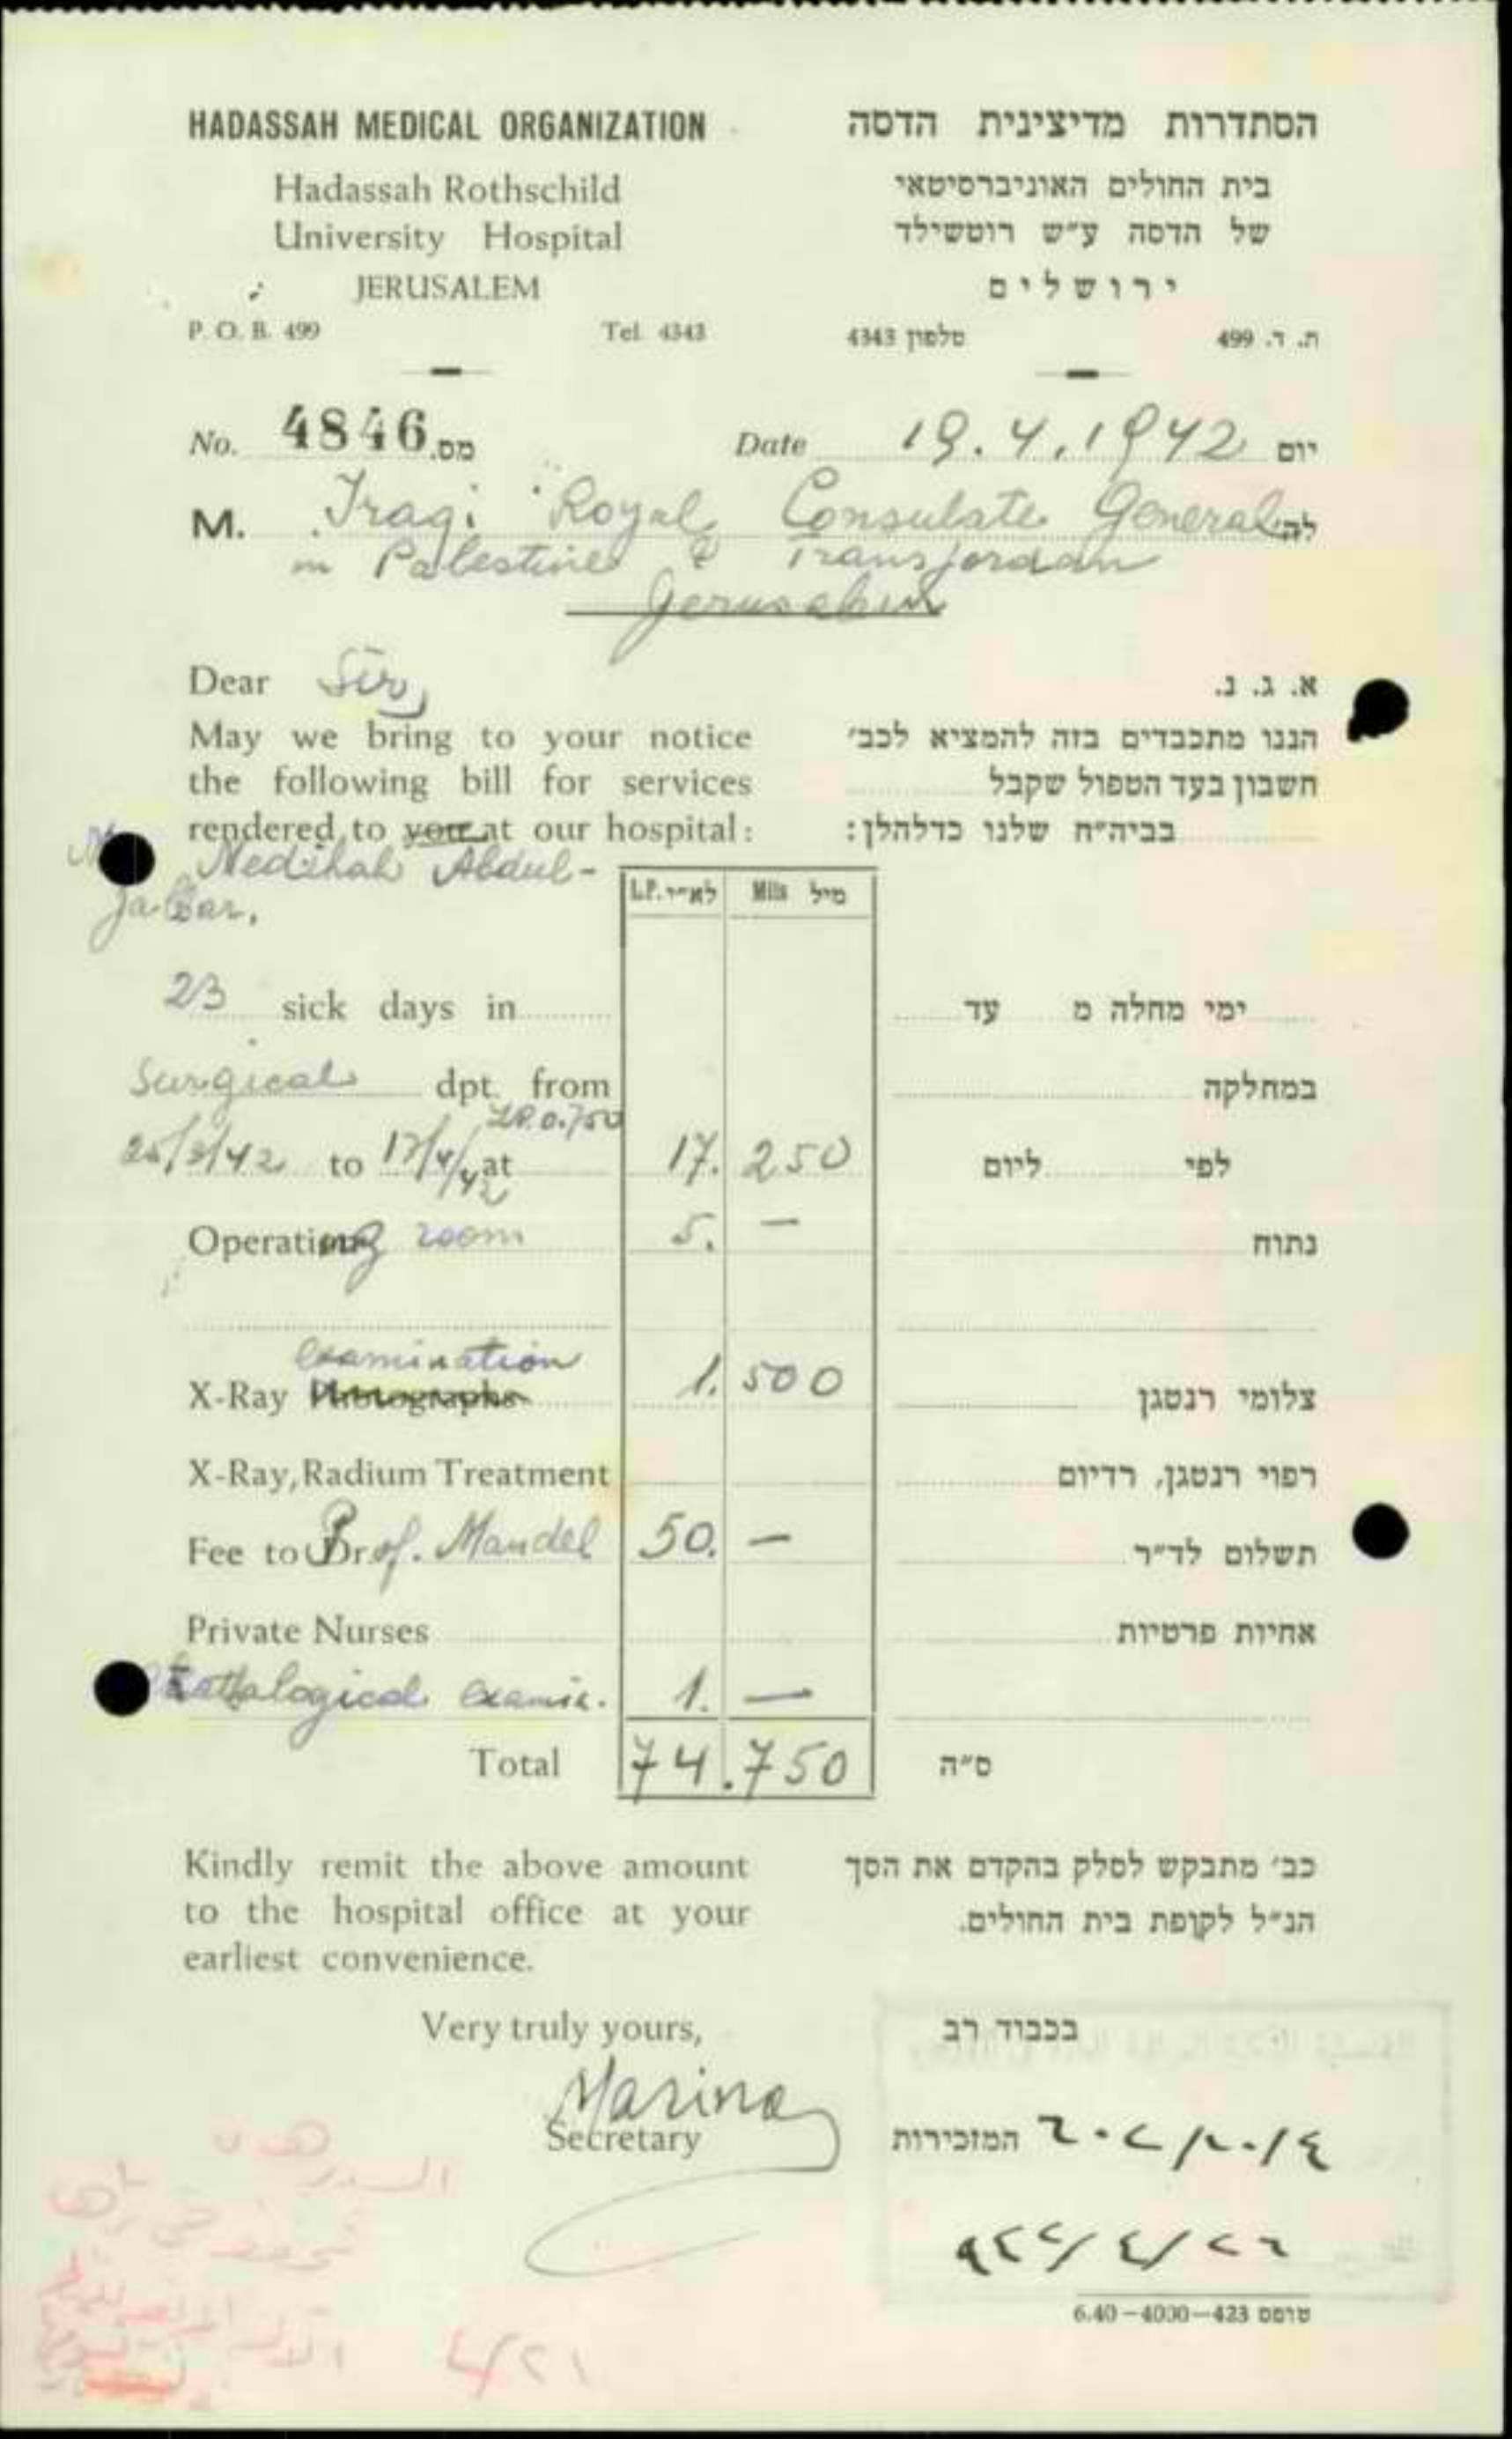 HADASSAH MEDICAL ORGANIZATION
Hadassah Rothschild
University Hospital
JERUSALEM
P. O. B. 499 Tel. 4343
הסתדרות מדיצינית הדסה
בית החולים האוניברסיטאי
של הדסה ע״ש רוטשילד
ירושלים
ת. ד. 499 טלפון 4343
No. 4846 מס.
Date 19.4.1942 יום
M. Iraqi Royal Consulate General לה
in Palestine & Transjordan
Jerusalem
Dear Sir,
May we bring to your notice
the following bill for services
rendered to you at our hospital:
א. ג. נ.
הננו מתכבדים בזה להמציא לכב׳
חשבון בעד הטפול שקבל
בביה״ח שלנו כדלהלן:
Medihah Abdul-
Jabbar.
L.P. לא״י Mils מיל
23 sick days in ימי מחלה מ עד
Surgical dpt. from במחלקה
LP.0.750
25/3/42 to 17/4/42 at 17. 250 לפי ליום
Operating room 5. — נתוח
examination
X-Ray Photographs 1. 500 צלומי רנטגן
X-Ray, Radium Treatment רפוי רנטגן, רדיום
Fee to Prof. Mandel 50. — תשלום לד״ר
Private Nurses אחיות פרטיות
Pathalogical examin. 1. —
Total 74.750 ס״ה
Kindly remit the above amount
to the hospital office at your
earliest convenience.
כב׳ מתבקש לסלק בהקדם את הסך
הנ״ל לקופת בית החולים.
Very truly yours,
Secretary
בכבוד רב
המזכירות
٩٤٢/٤/٢٦
טופס 423—4000—6.40
٤/٢١